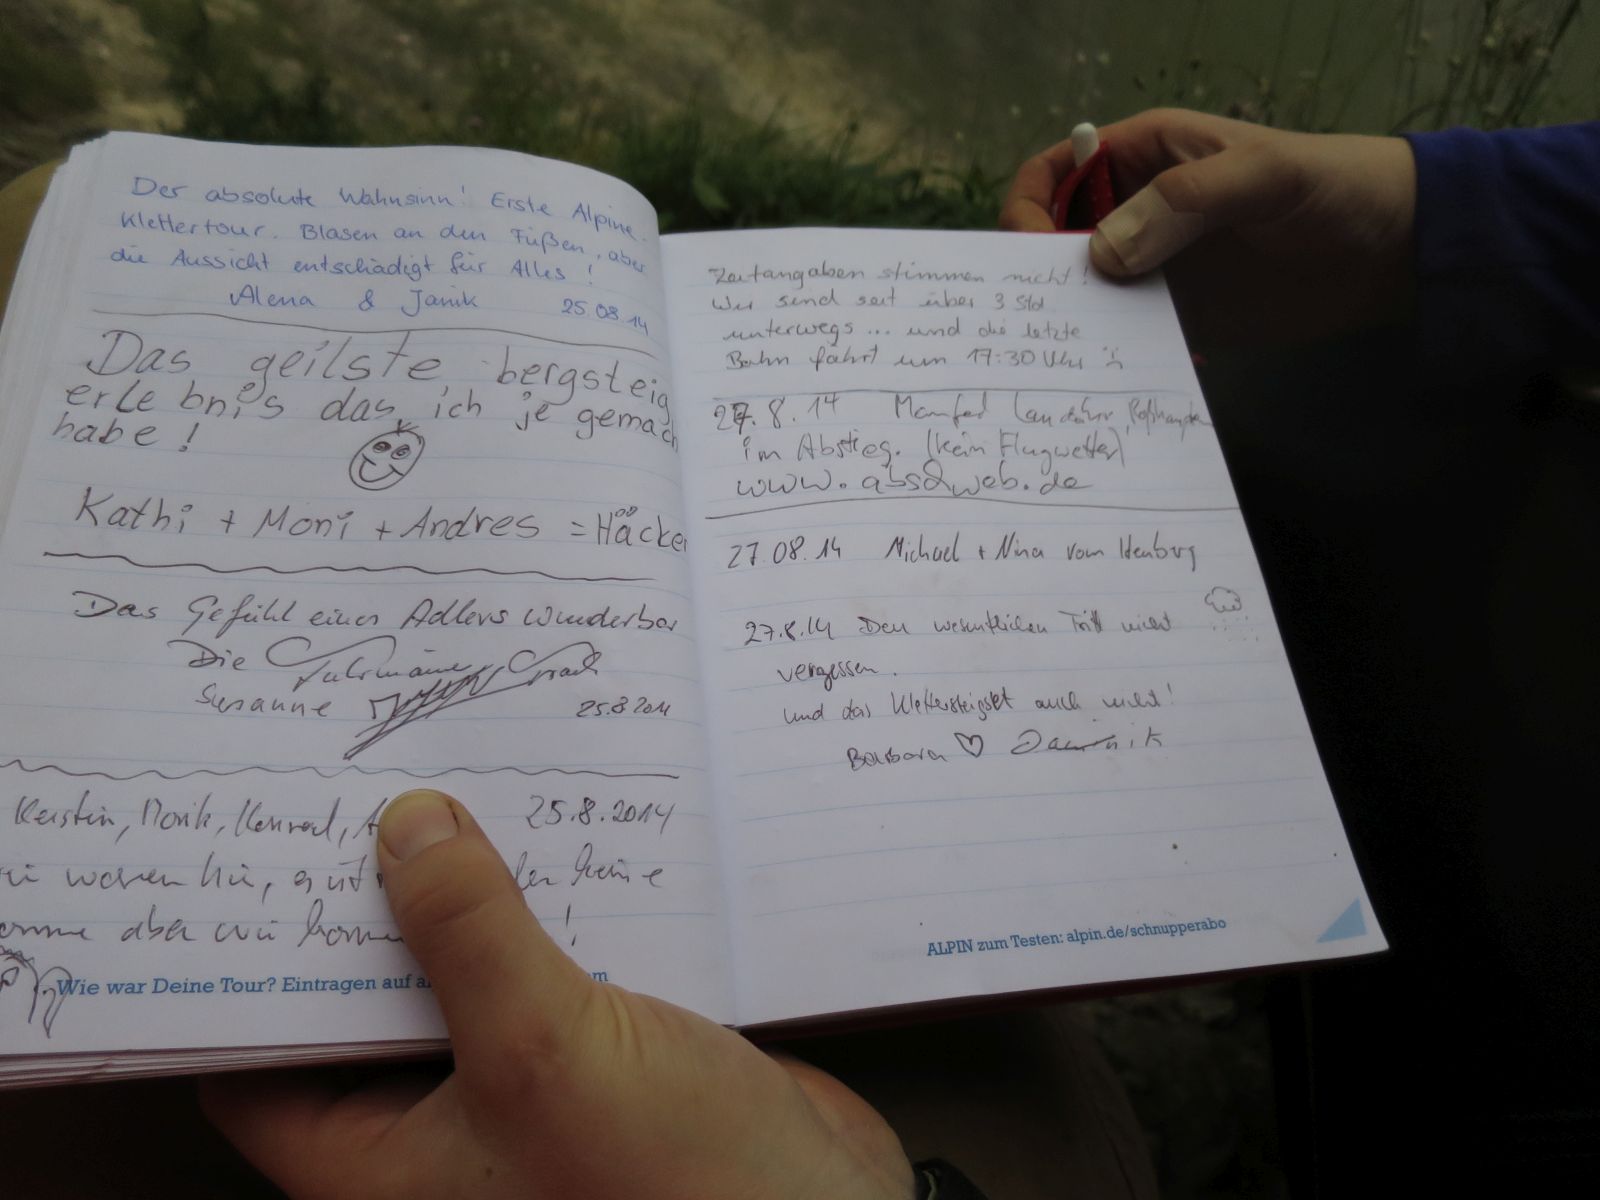 Der absolute Wahnsinn! Erste Alpine-
Klettertour. Blasen an den Füßen, aber
die Aussicht entschädigt für Alles!
Alena & Janik 25.08.14
Das geilste bergsteig
erlebnis das ich je gemach
habe!
Kathi + Moni + Andres = Häcker
Das Gefühl eines Adlers wunderbar
Die
Susanne 25.8.2014
Kerstin, Konrad, 25.8.2014
waren hier, keine
aber wir
Wie war Deine Tour? Eintragen auf al m
Zeitangaben stimmen nicht!
Wir sind seit über 3 Std
unterwegs... und die letzte
Bahn fährt um 17:30 Uhr
27.8.14 Manfred
im Abstieg. (kein Flugwetter)
www.abs2web.de
27.08.14 Michael + Nina vom
27.8.14 Den wesentlichen Tritt nicht
vergessen.
und das Klettersteigset auch nicht!
Barbara ♡ Dominik
ALPIN zum Testen: alpin.de/schnupperabo